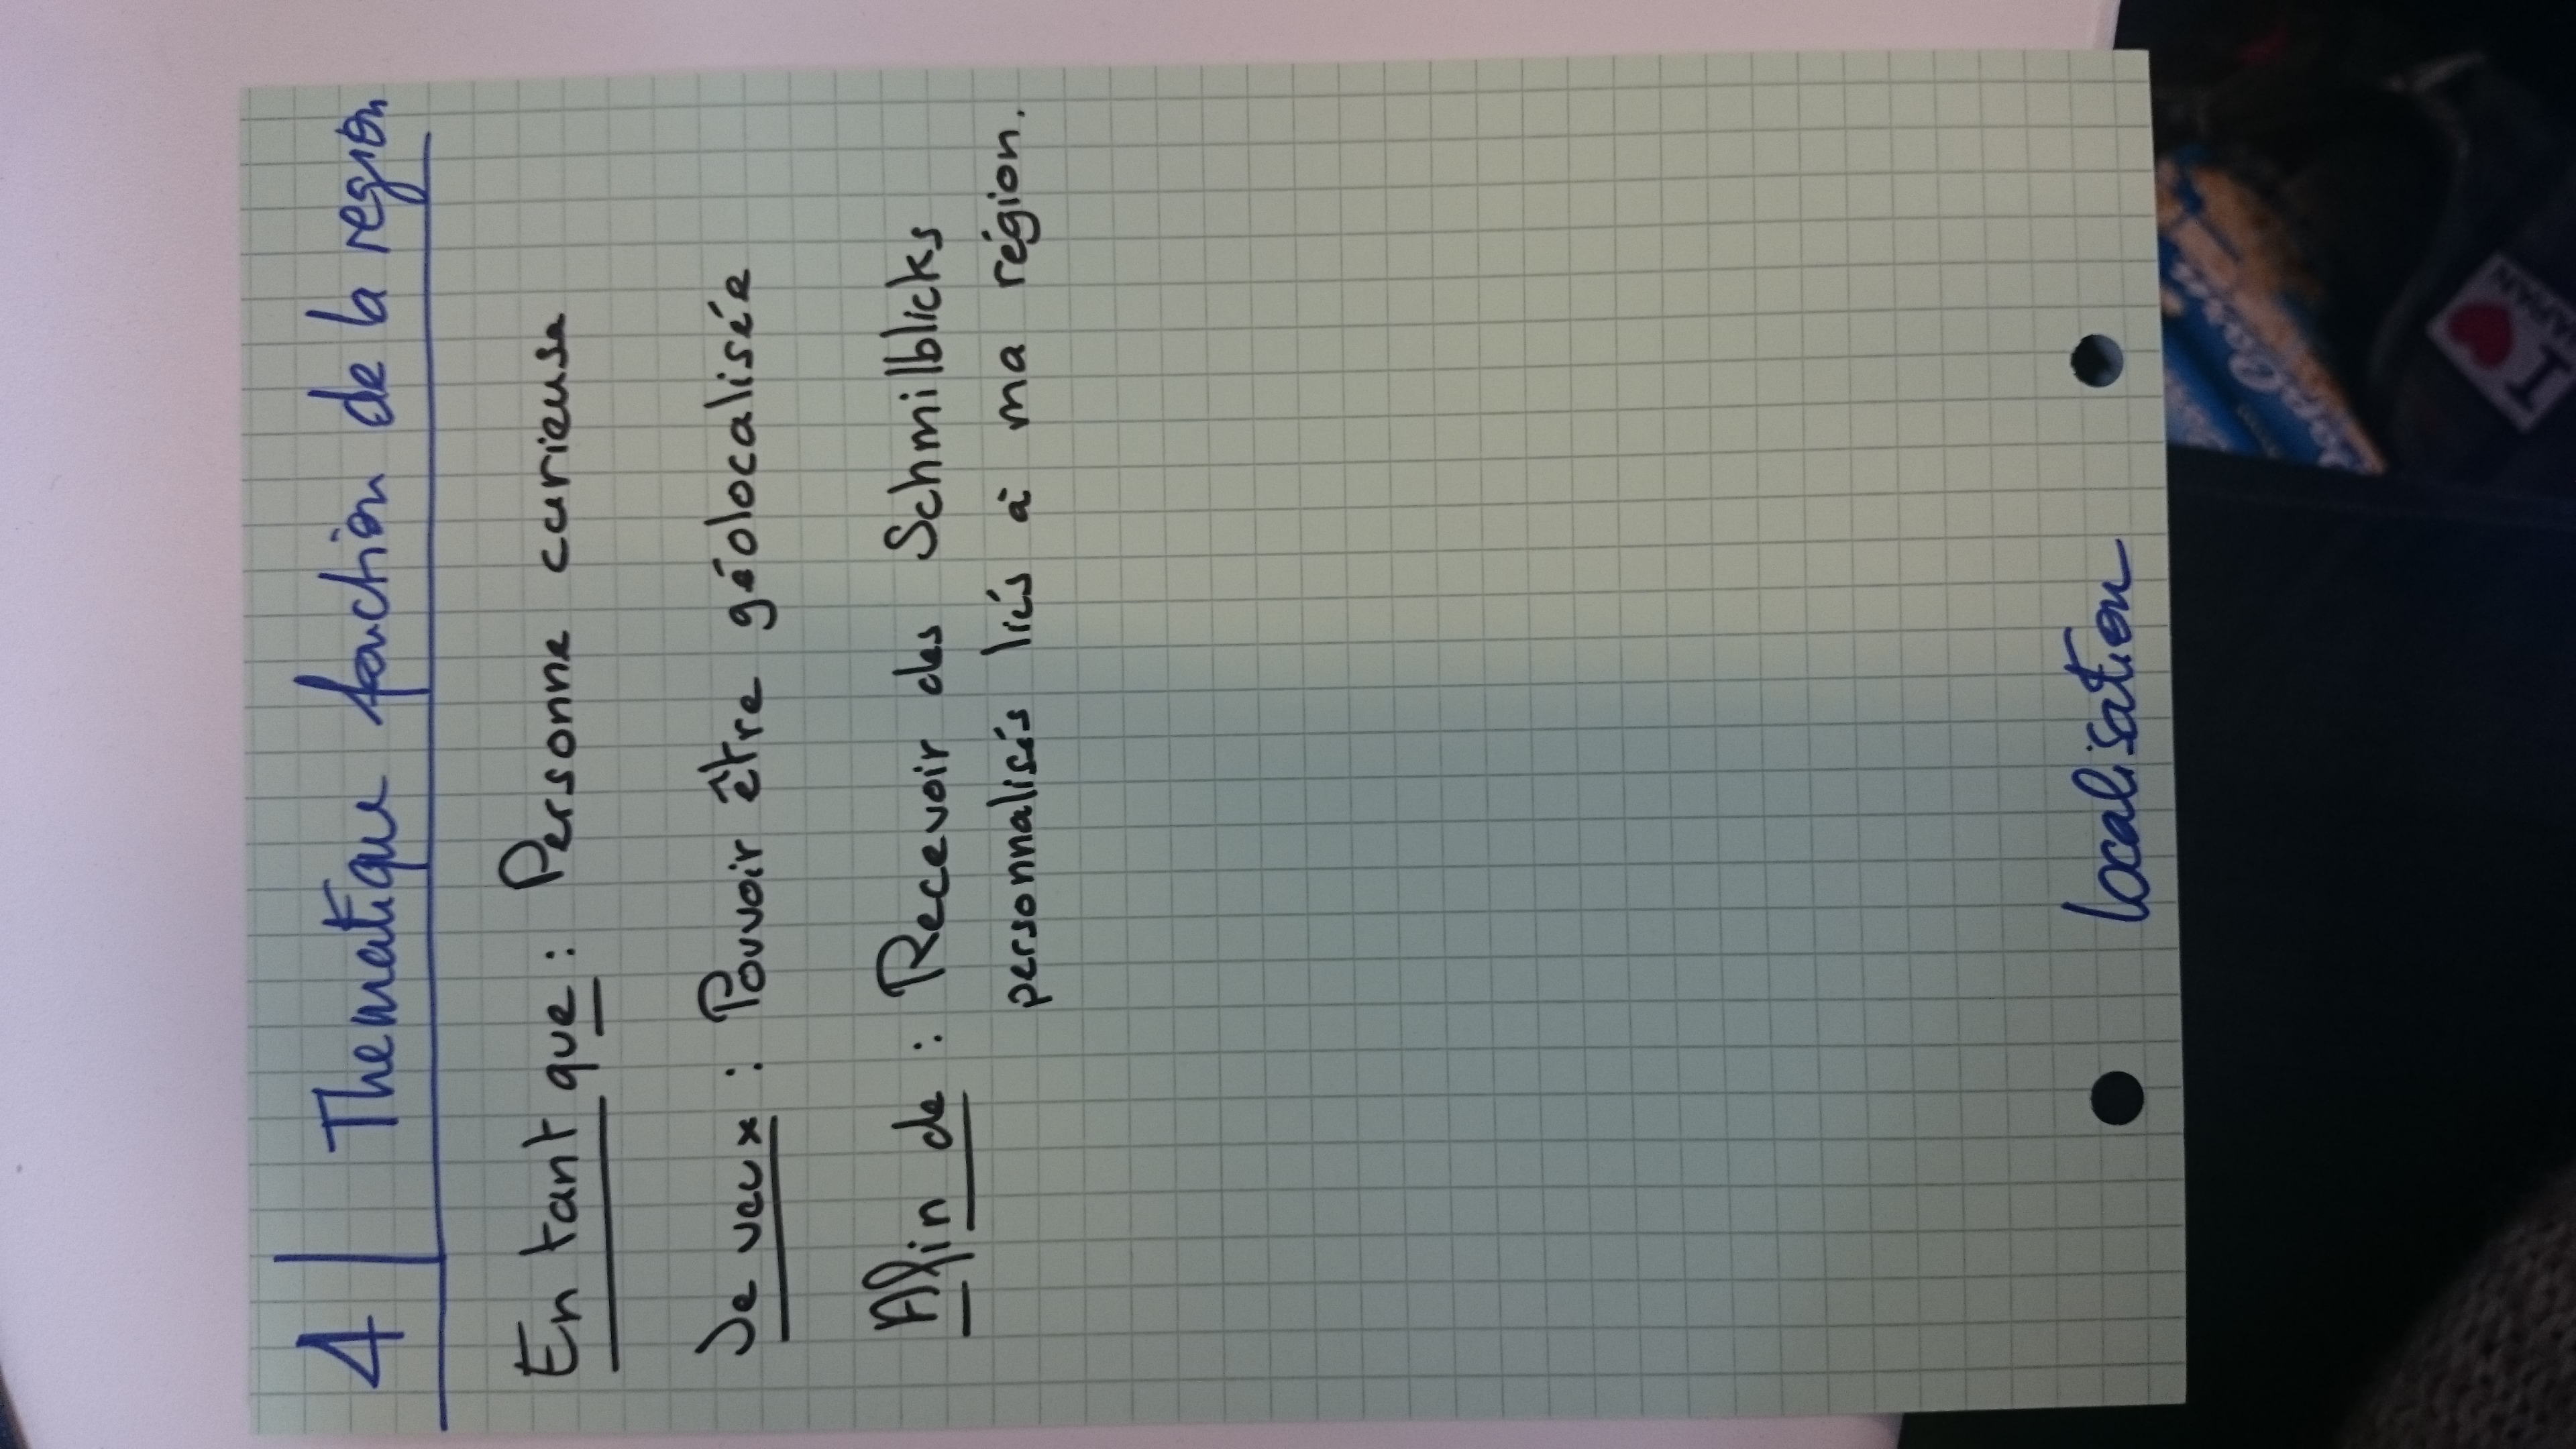 4 Thematique fonction de la region
En tant que : Personne curieuse
Je veux : Pouvoir être géolocalisée
Afin de : Recevoir des Schmilblicks
personnalisés liés à ma région.
localisation
I ♥